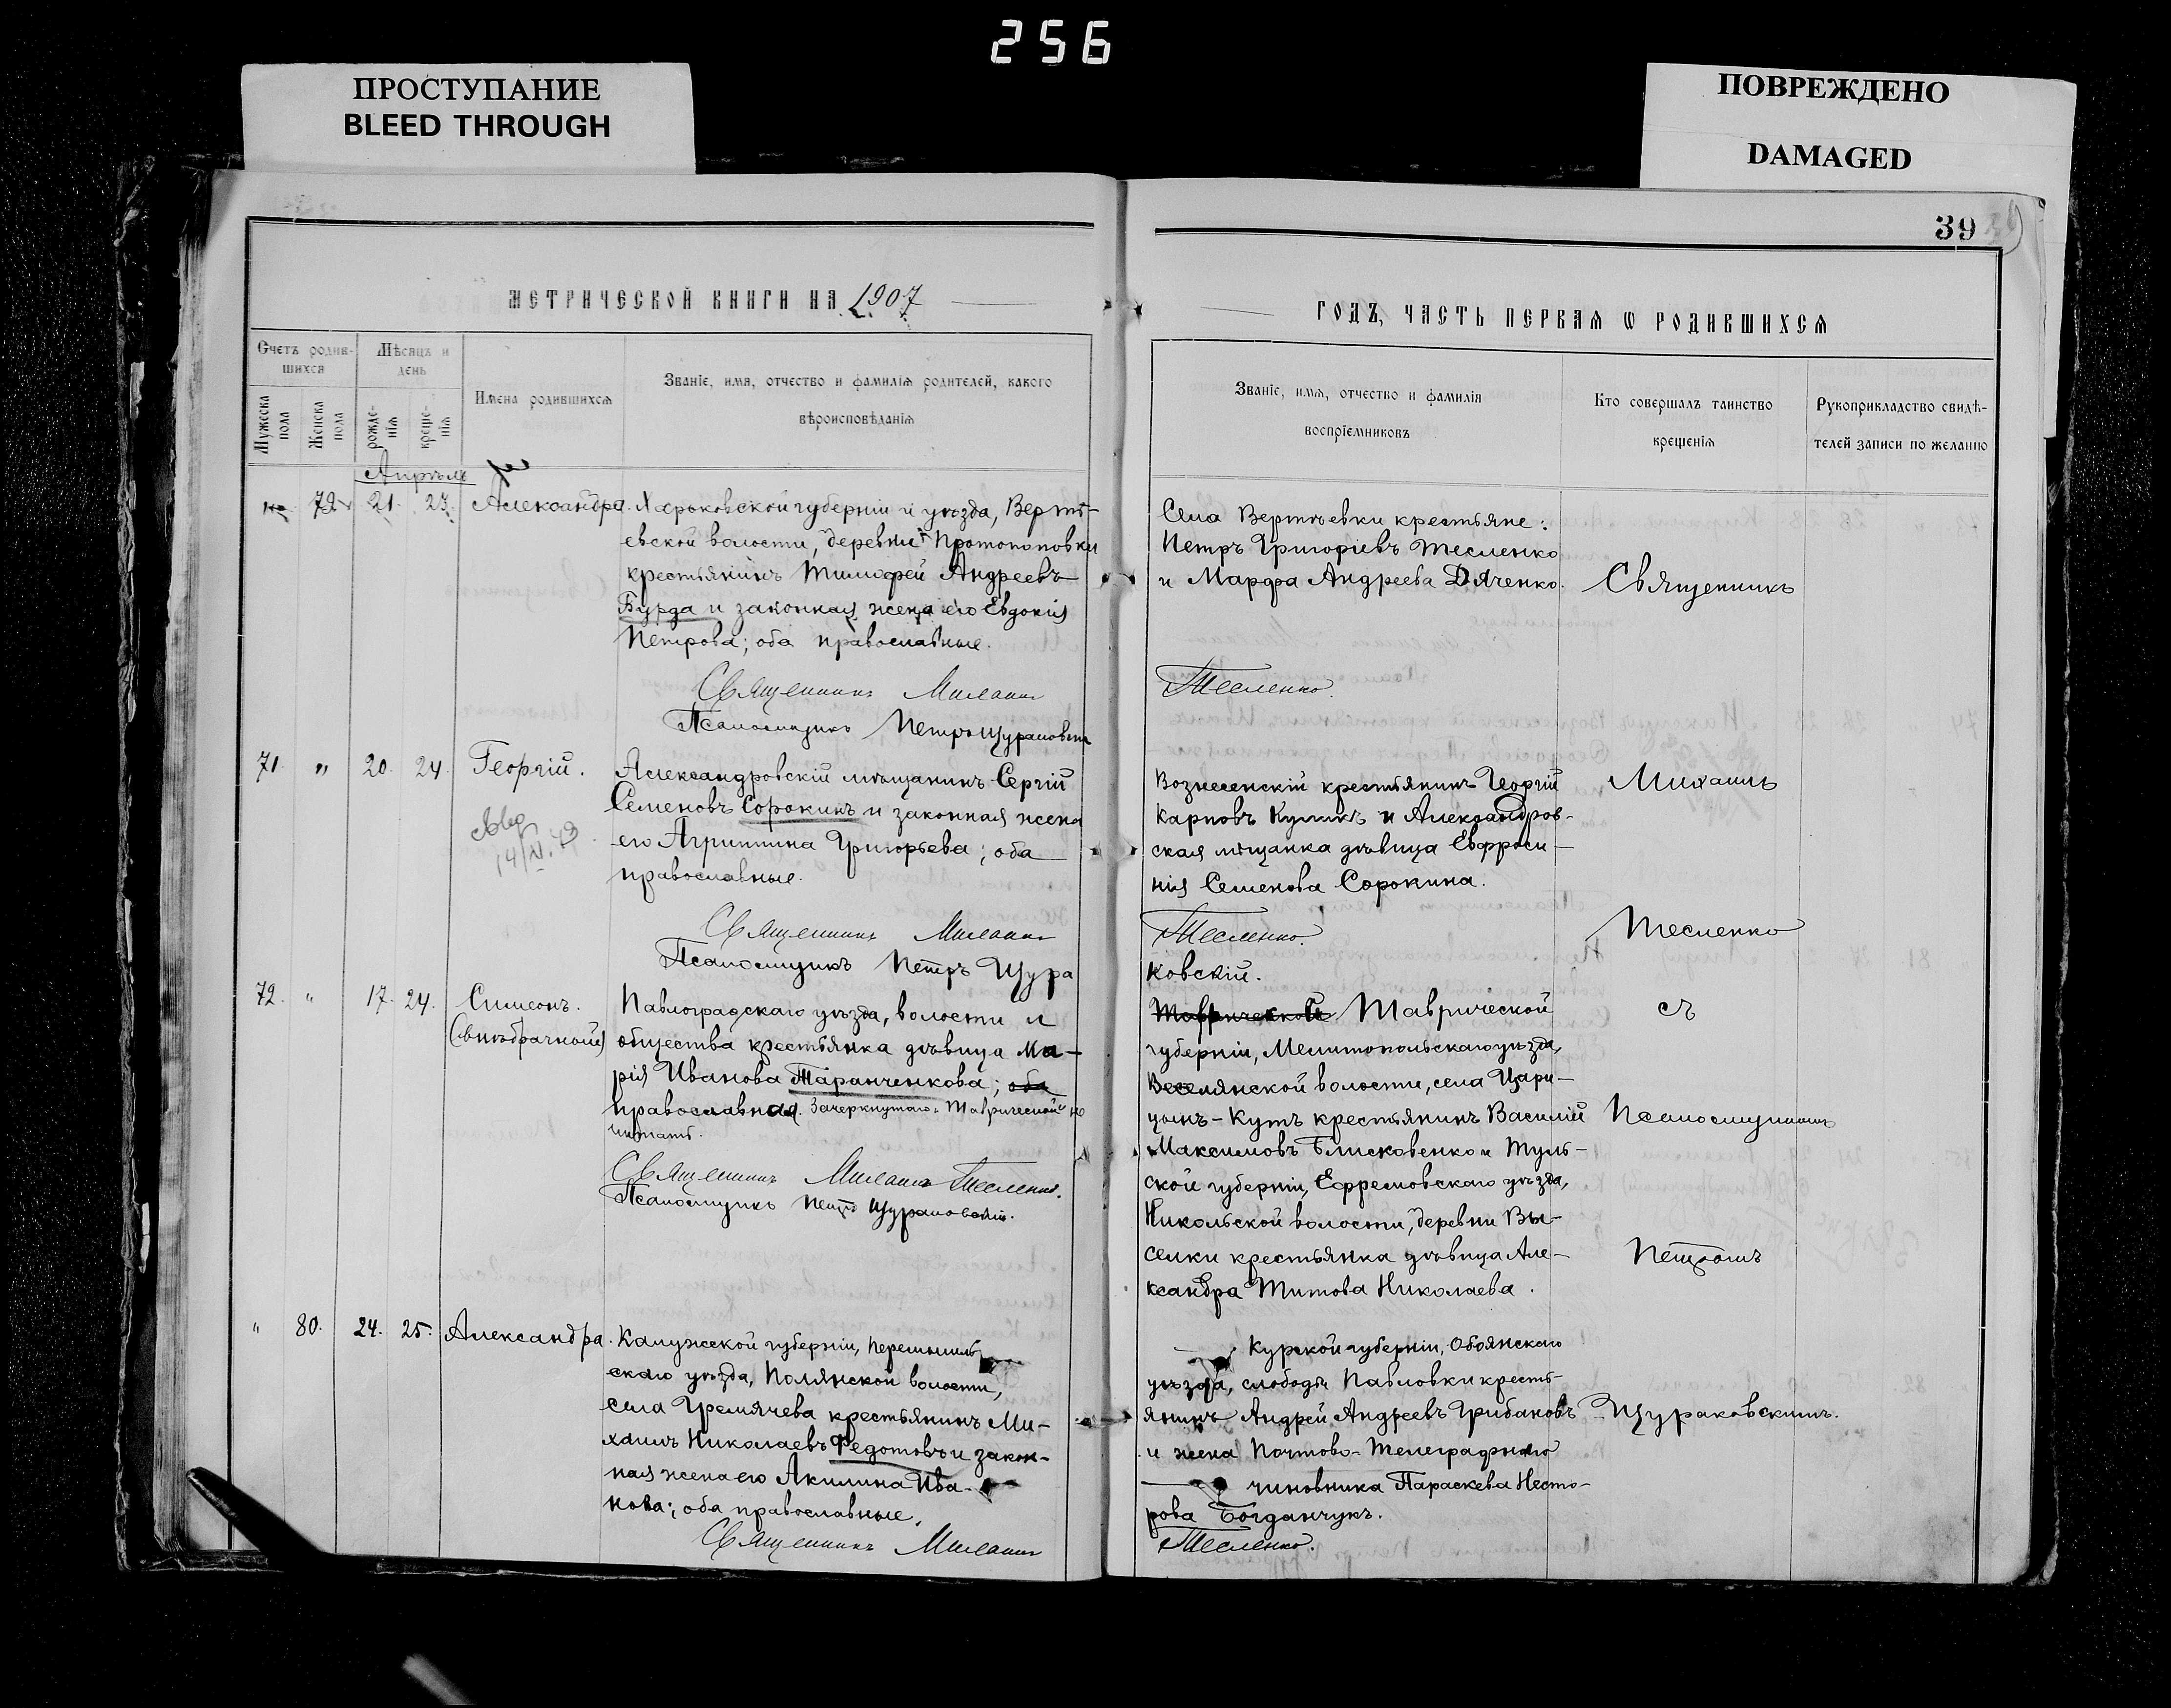 256
ПРОСТУПАНИЕ
BLEED THROUGH
ПОВРЕЖДЕНО
DAMAGED
39
МЕТРИЧЕСКОЙ КНИГИ НА 1907
Счетъ родив-
шихся
Мѣсяцъ и
день
Мужеска
пола
Женска
пола
рожде-
нія
креще-
нія
Имена родившихся
Званіе, имя, отчество и фамилія родителей, какого
вѣроисповѣданія
Апрѣль
79 21. 23. Александра. Харьковской губерніи и уѣзда, Вертѣ-
евской волости, деревни Протопоповки
крестьянинъ Тимофей Андреевъ
Бурда и законная жена его Евдокія
Петрова; оба православные.
Священникъ Михаилъ
Псаломщикъ Петръ Щураковскій
71. " 20. 24. Георгій. Александровскій мѣщанинъ Сергій
Семеновъ Сорокинъ и законная жена
его Агриппина Григорьева; оба
православные.
Священникъ Михаилъ
Псаломщикъ Петръ Щура
72. " 17. 24. Симеонъ. Павлоградскаго уѣзда, волости и
(внѣбрачный) общества крестьянка дѣвица Ма-
рія Иванова Таранченкова; оба
православная. Зачеркнутаго „Таврической" не
читать.
Священникъ Михаилъ Тесленко.
Псаломщикъ Петръ Щураковскій.
" 80. 24. 25. Александра. Калужской губерніи, Перемышль-
скаго уѣзда, Полянской волости,
села Гремячева крестьянинъ Ми-
хаилъ Николаевъ Федотовъ и закон-
ная жена его Акилина Ива-
нова; оба православные.
Священникъ Михаилъ
ГОДЪ, ЧАСТЬ ПЕРВАЯ Ѡ РОДИВШИХСЯ
Званіе, имя, отчество и фамилія
воспріемниковъ
Кто совершалъ таинство
крещенія
Рукоприкладство свидѣ-
телей записи по желанію
Села Вертѣевки крестьяне:
Петръ Григоріевъ Тесленко
и Марфа Андреева Дяченко. Священникъ
Тесленко.
Вознесенскій крестьянинъ Георгій Михаилъ
Карповъ Куликъ и Александров-
ская мѣщанка дѣвица Евфроси-
нія Семенова Сорокина.
Тесленко. Тесленко
ковскій.
Таврической Таврической съ
губерніи, Мелитопольскаго уѣзда,
Веселянской волости, села Цари-
цынъ-Кутъ крестьянинъ Василій Псаломщикомъ
Максимовъ Блисковенко и Туль-
ской губерніи, Ефремовскаго уѣзда,
Никольской волости, деревни Вы-
селки крестьянка дѣвица Але- Петромъ
ксандра Титова Николаева.
Курской губерніи, Обоянскаго
уѣзда, слободы Павловки кресть-
янинъ Андрей Андреевъ Грибановъ Щураковскимъ.
и жена Почтово-Телеграфнаго
чиновника Параскева Несто-
рова Богданчукъ.
Тесленко.